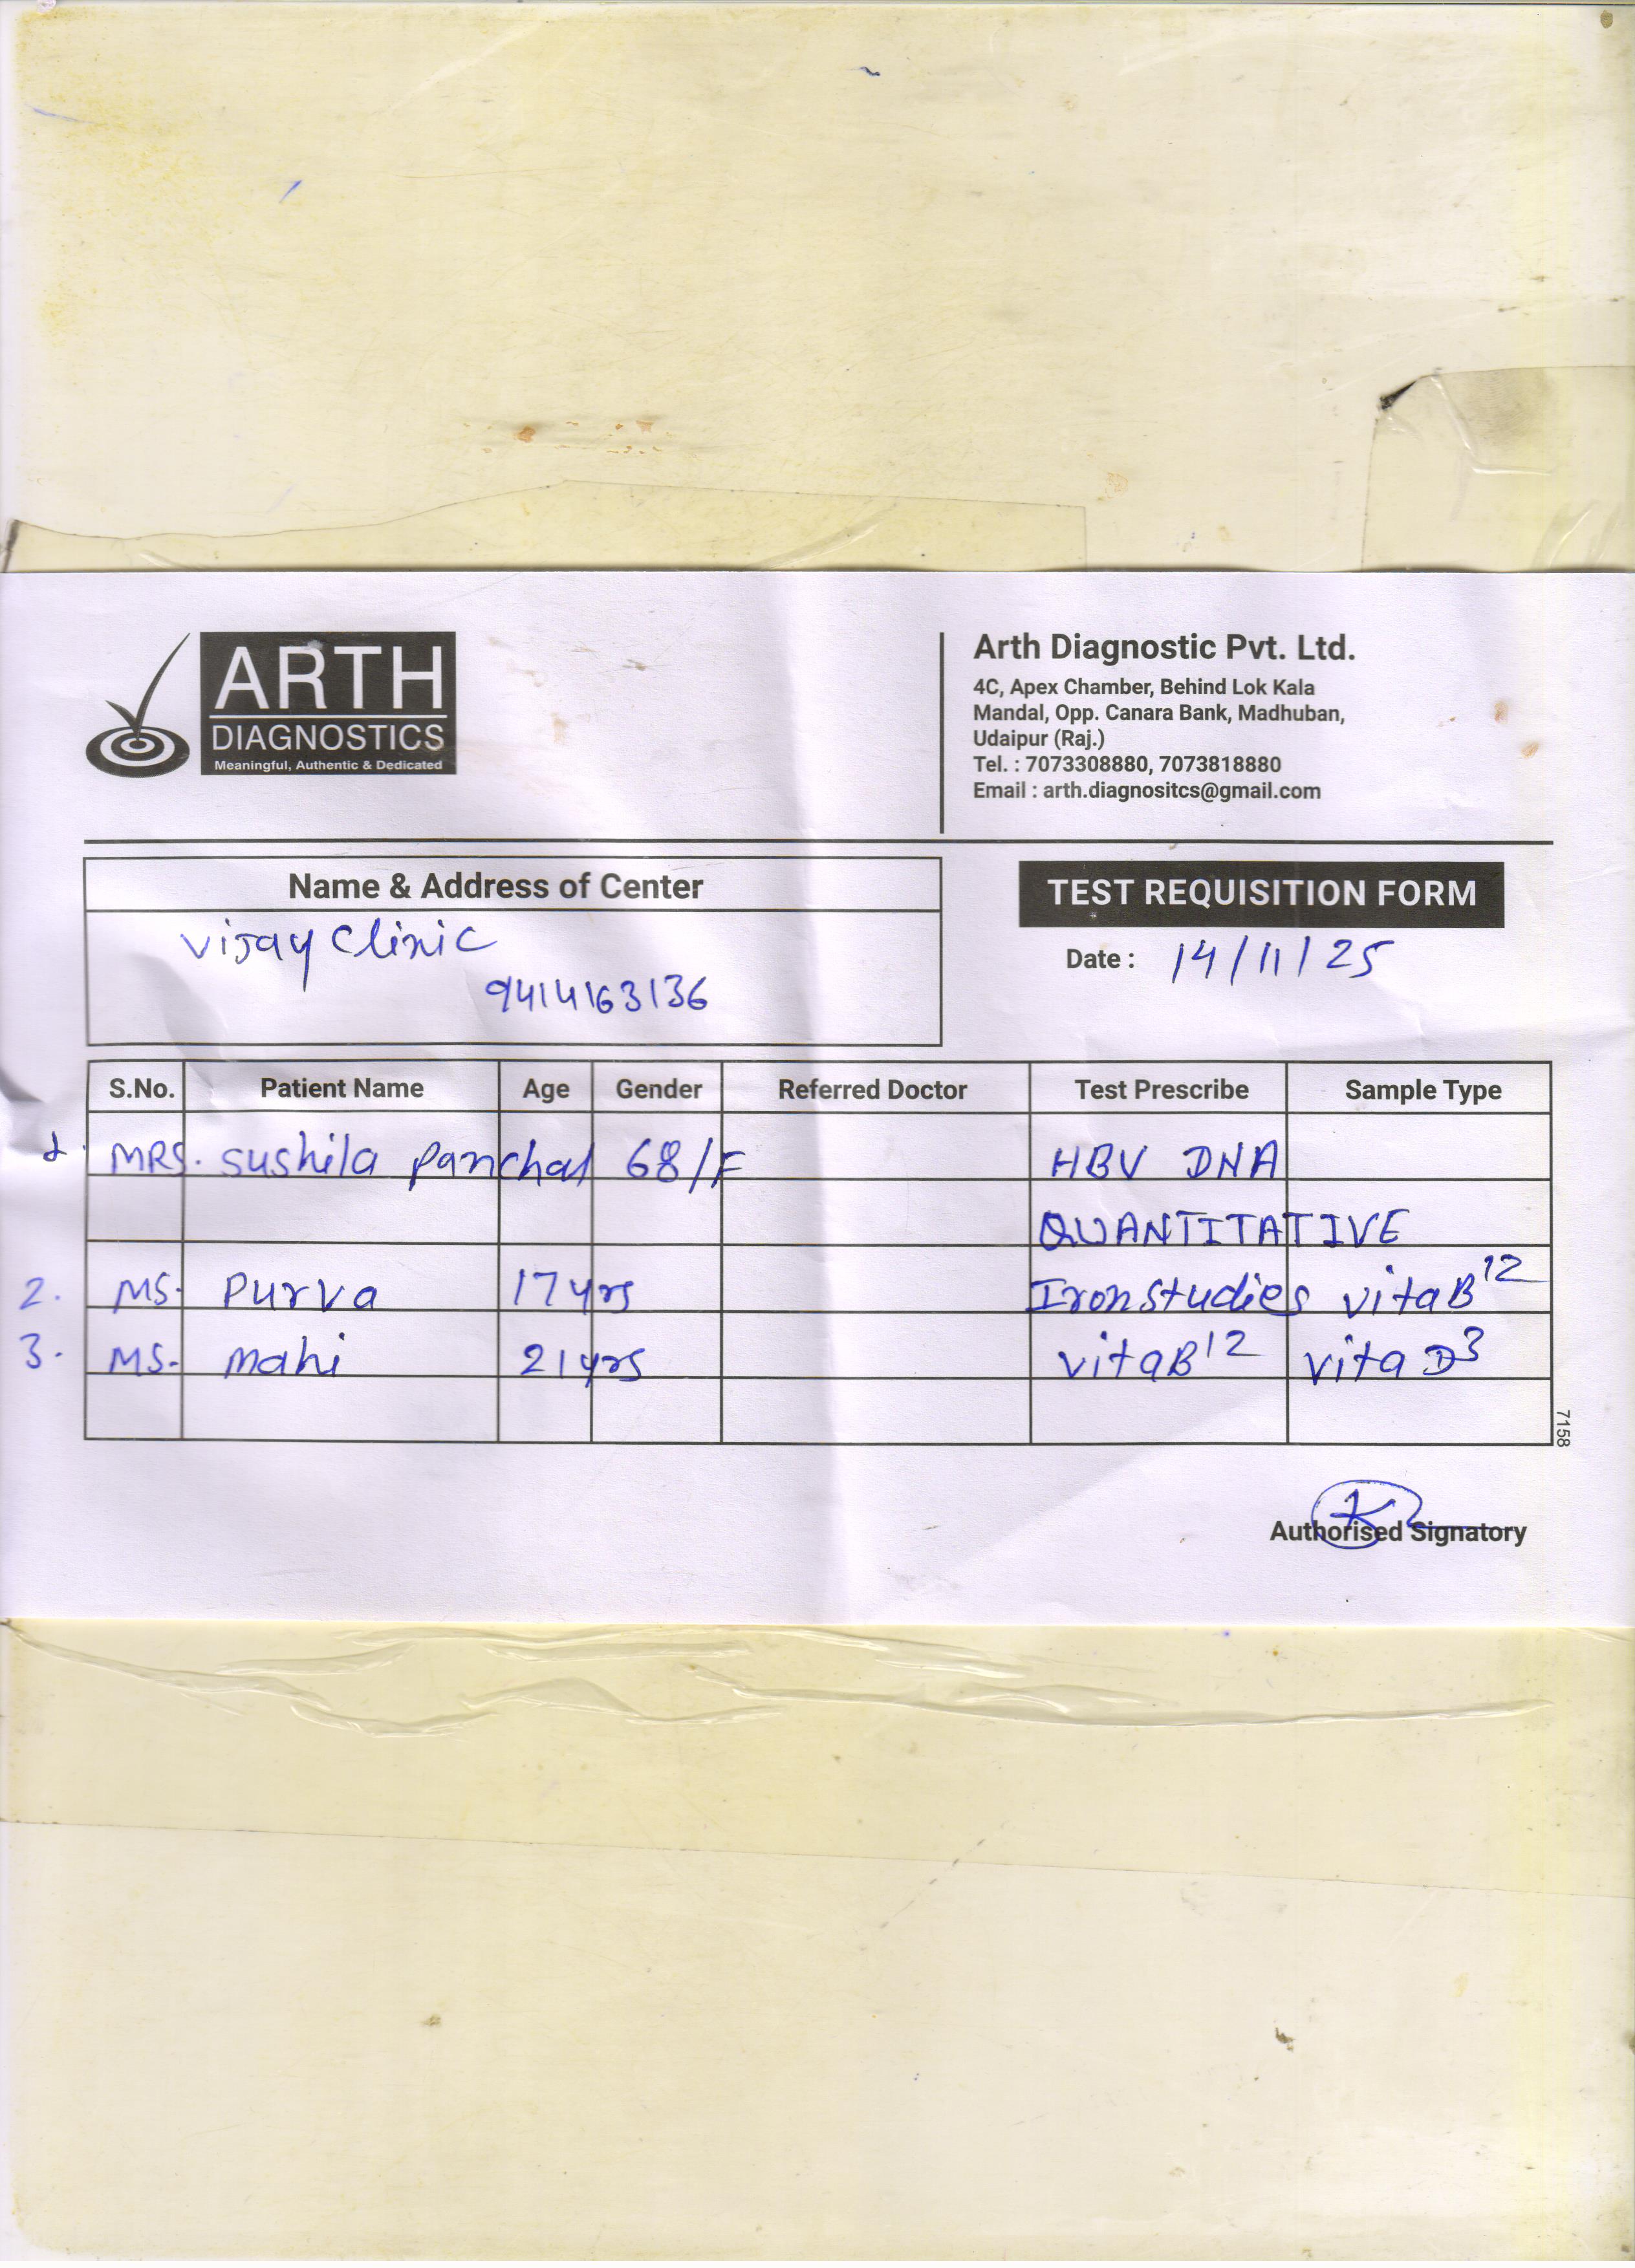 ARTH
DIAGNOSTICS
Meaningful, Authentic & Dedicated
Arth Diagnostic Pvt. Ltd.
4C, Apex Chamber, Behind Lok Kala
Mandal, Opp. Canara Bank, Madhuban,
Udaipur (Raj.)
Tel. : 7073308880, 7073818880
Email : arth.diagnositcs@gmail.com
Name & Address of Center
Vijay Clinic
9414163136
TEST REQUISITION FORM
Date : 14/11/25
S.No. Patient Name Age Gender Referred Doctor Test Prescribe Sample Type
MRS. sushila panchal 68/F HBV DNA
QUANTITATIVE
2. MS. Purva 17 yrs Iron studies vita B12
3. MS. mahi 21 yrs vita B12 vita D3
7158
Authorised Signatory